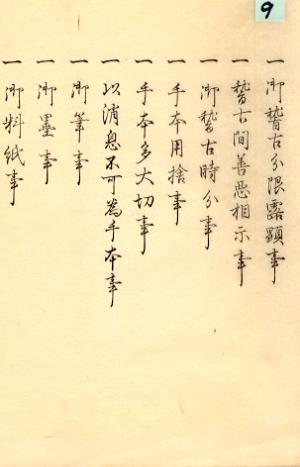 9
一 御稽古分限露顕事
一 稽古間善悪相示事
一 御稽古時分事
一 手本用捨事
一 手本多大切事
一 以消息不可為手本事
一 御筆事
一 御墨事
一 御料紙事